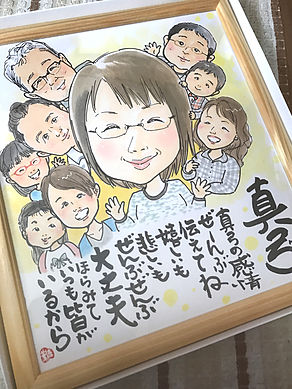 真弓
真弓の感情
ぜんぶ
伝えてね
嬉しいも
悲しいも
ぜんぶぜんぶ
大丈夫
ほらみて
いつも皆が
いるから